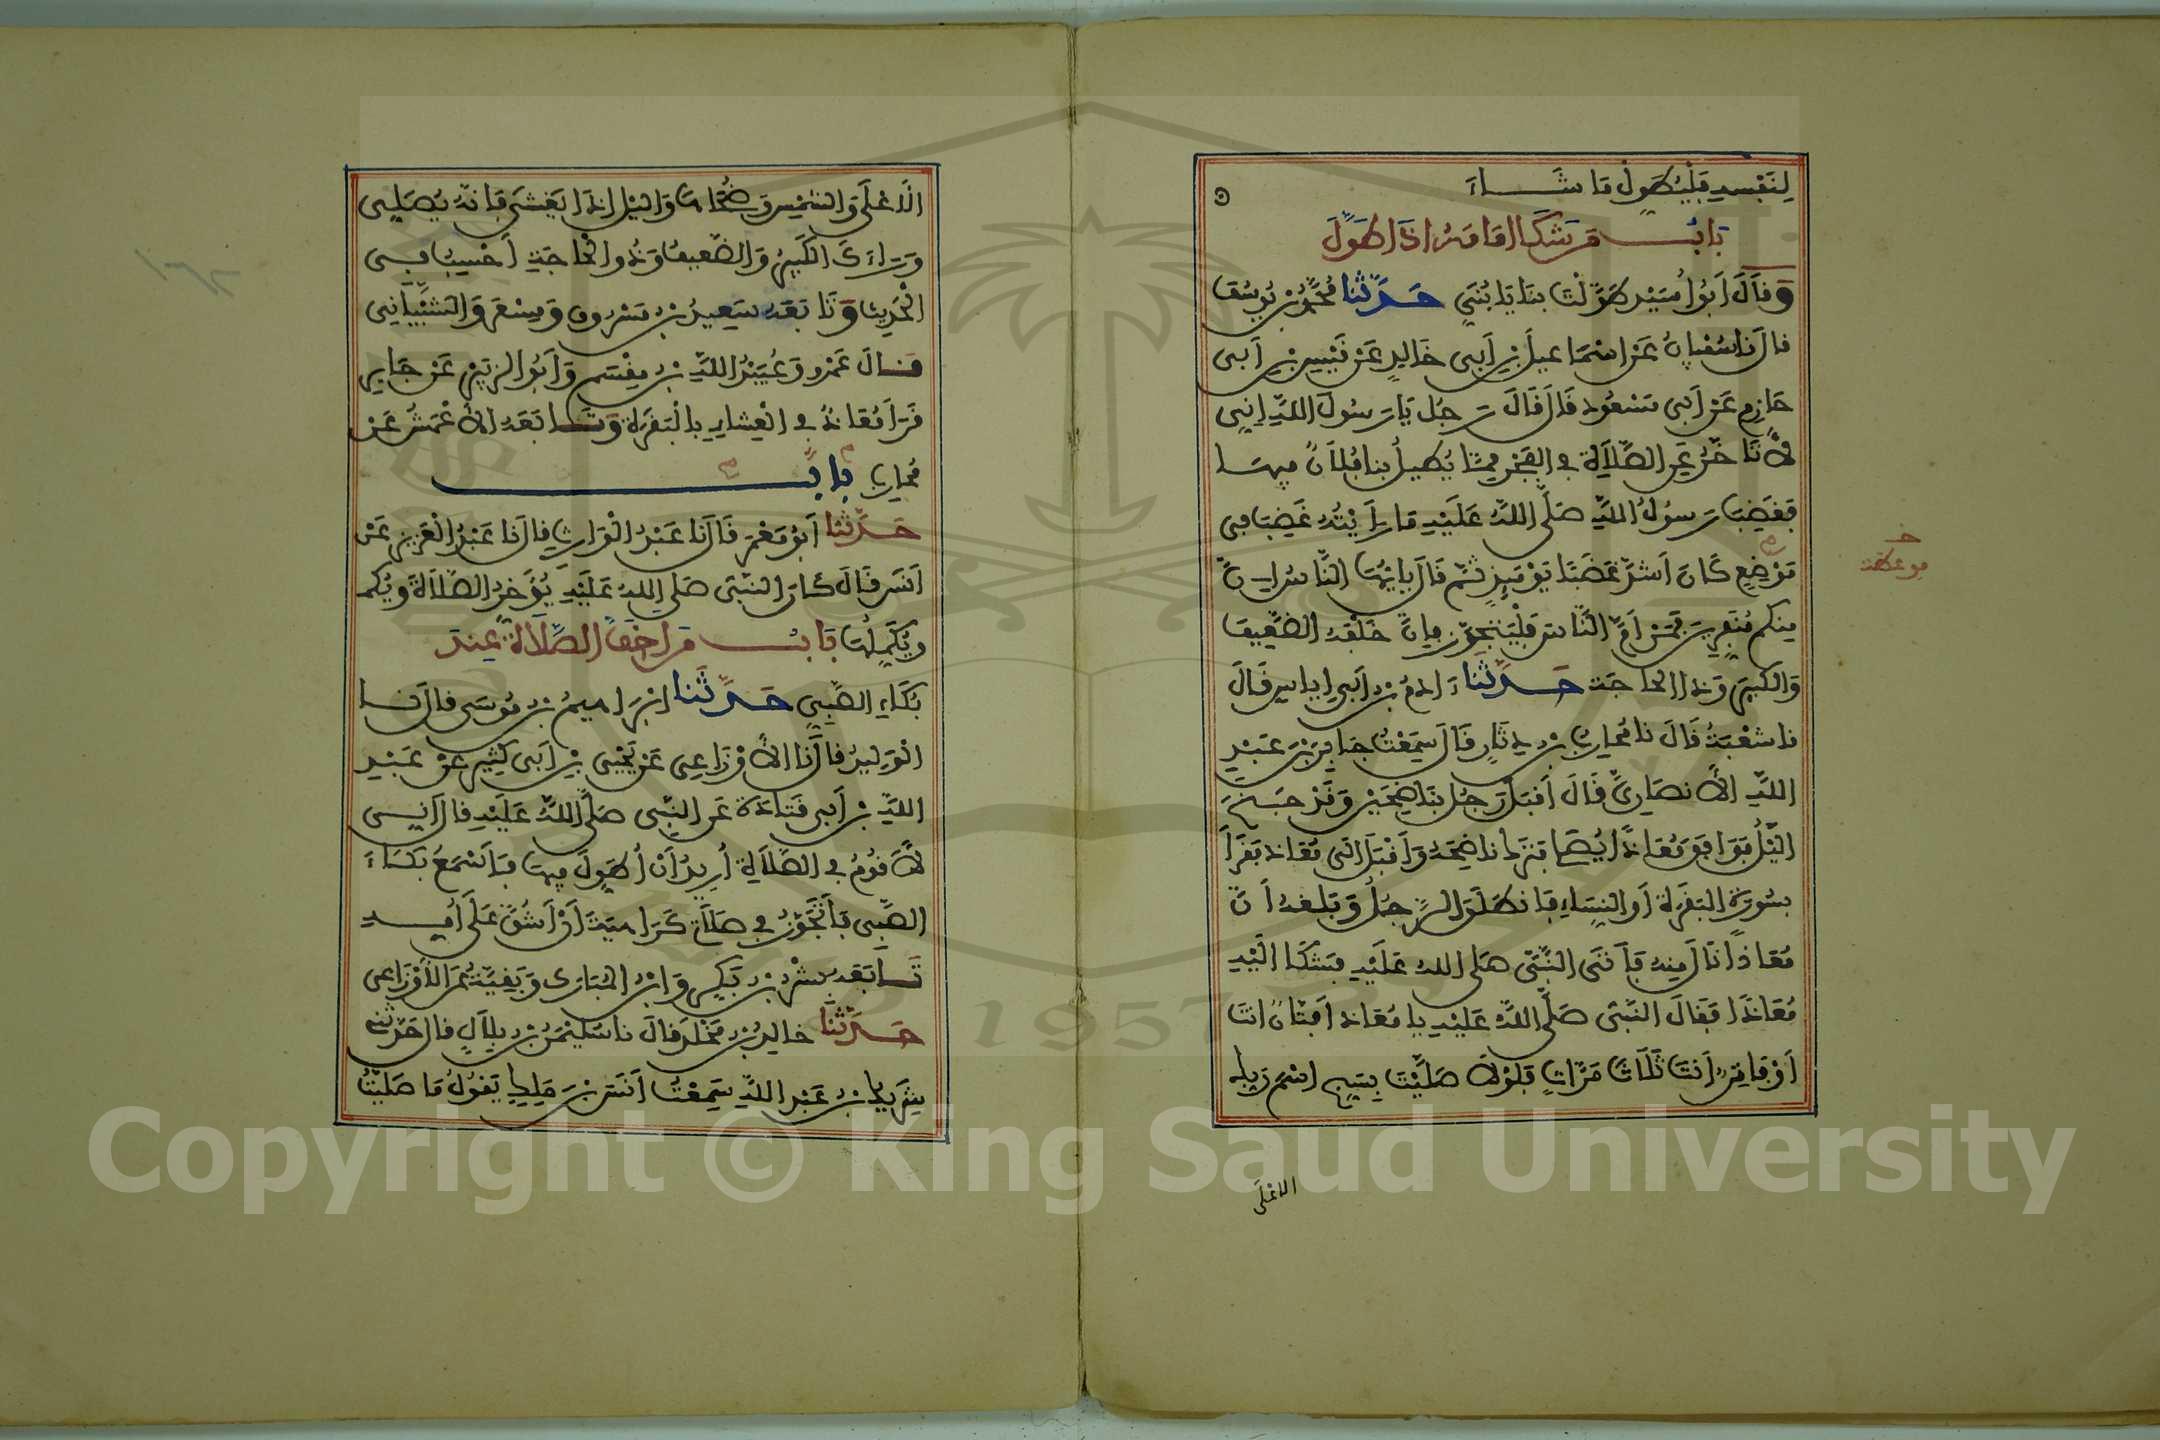 لِنَفْسِهِ فَلْيُطَوِّلْ مَا شَاءَ
بَابُ مَن شَكَا إمَامَهُ إذَا طَوَّلَ
وَقَالَ أَبُو أُسَيْدٍ طَوَّلْتَ بِنَا يَا بُنَيِّ حَدَّثَنَا مُحَمَّدُ بْنُ يُوسُفَ
قال نَا سُفْيَانُ عَنْ إسْمَاعِيلَ بْنِ أَبِي خَالِدٍ عَنْ قَيْسِ بْنِ أَبِي
حَازِمٍ عَنْ أَبِي مَسْعُودٍ قَالَ قَالَ رَجُل يَا رَسُولَ اللَّهِ إنِّي
لَأَتَأَخَّرُ عَنِ الصَّلَاةِ في الفَجْرِ مِمَّا يُطِيلُ بنَا فُلَانٌ فِيهَا
فَغَضِبَ رَسُولُ اللَّهِ صَلَّى اللَّهُ عَلَيْهِ مَا رَأَيْتُهُ غَضِبَ فِي
مَوْضِعٍ كَانَ أَشَدَّ غَضَبًا يَوْمَئِذٍ ثُمَّ قَالَ يَا أَيُّهَا النَّاسُ إِنَّ
مِنكم مُنَفِّرِينَ فَمَنْ أَمَّ النَّاسَ فَلْيَتَجَوَّزْ فإنَّ خَلْفَهُ الضَّعِيفَ
وَالكَبِيرَ وَذا الحاجَة حَدَّثَنَا ءَادمُ بْنُ أَبِي إيَاسٍ قَالَ
نا شُعْبَةُ قَالَ نا مُحَارِبُ بْنُ دِثَارٍ قَالَ سَمِعْتُ جَابِرَ بْنَ عَبْدِ
اللَّهِ الأَنصَارِيَّ قَالَ أَقبَلَ رَجُل بِنَاضِحَيْنِ وَقَدْ جَنَحَ
اللَّيْلُ فَوَافَقَ مُعَاذًا يُصَلِّي فَتَرَكَ نَاضِحَهُ وَأَقْبَلَ إلَى مُعَاذٍ فَقَرَأَ
بِسُورَةِ البَقَرَةِ أَوِ النِّسَاءِ فَانطَلَقَ الرَّجُلُ وَبَلَغَهُ أَنَّ
مُعَاذًا نَالَ مِنهُ فَأَتَى النَّبِيَّ صَلَّى اللهُ عَلَيْهِ فشَكَا إلَيْهِ
مُعَاذًا فَقَالَ النَّبِيُّ صَلَّى اللَّهُ عَلَيْهِ يا مُعَاذُ أَفَتَّانٌ أنتَ
أَوْ فَاتِنٌ أَنتَ ثَلَاثَ مَرَّاتٍ فَلَوْلَا صَلَّيْتَ بِسَبِّحِ اسْمَ رَبِّكَ
الاعْلَى
الَاعْلَى وَالشَّمْسِ وَضُحَاهَا وَاليْلِ إذَا يَغْشَى فَإنَّهُ يُصَلِّي
وَرَاءَكَ الكَبِيرُ وَالضَّعِيفُ وَذُو الْحَاجَةِ أَحْسِبُ فِي
الْحَدِيثِ وَتَابَعَهُ سَعِيدُ بْنُ مَسْرُوقٍ وَمِسْعَرٌ وَالشَّيْبَانِي
قَالَ عَمْرٌو وَعُبَيْدُ اللَّهِ بْنُ مِقْسَمٍ وَأَبُو الزبَيْرِ عَنْ جَابِرٍ
قَرَأَ مُعَاذٌ في الْعِشَاءِ بِالْبَقَرَةِ وَتَابَعَهُ الأَعْمَشُ عَنْ
مُحَارِبٍ بَابٌ
حَدَّثَنَا أَبُو مَعْمَرٍ قَالَ نَا عَبْدُ الْوَارِثِ قال نَا عَبْدُ الْعَزِيزِ عَنْ
أَنَسٍ قَالَ كَانَ النَّبِيُّ صَلى اللهُ عَلَيْهِ يُؤَخِّرُ الصَّلَاةَ ويُكم
ويُكَمِّلُهَا بَابُ مَن أَخَفَّ الصَّلَاةَ عِندَ
بُكَاءِ الصَّبِيِّ حَدَّثَنَا إبْرَاهِيمُ بْنُ مُوسَى قال نَا
الْوَلِيدُ قال نَا الأَوْزَاعِي عَنْ يَحْيَى بْنِ أَبِي كَثِيرٍ عَنْ عَبْدِ
اللَّهِ بْنِ أَبِي قَتَادَةَ عَنِ النَّبِي صَلَّى اللَّهُ عَلَيْهِ قال إنِّي
لَأَقُومُ في الصَّلَاةِ أُرِيدُ أَنْ أُطَوِّلَ فِيهَا فَأَسْمَعُ بُكَاءَ
الصَّبِي فَأَتَجَوَّزُ في صَلَاتِي كَرَاهِيَةَ أَنْ أَشُقَّ عَلَى أُمِّهِ
تَابَعَهُ بِشْرُ بْنُ بَكْرٍ وَابْنُ المُبَارَكِ وَبَقِيَّةُ عَنِ الأَوْزَاعِي
حَدَّثَنَا خالِدُ بْنُ مَخْلَدٍ قالَ نا سُلَيْمَنُ بْنُ بِلَالٍ قال حَدَّثَنِي
شَرِيكُ بْنُ عَبْدِ اللَّهِ سَمِعْتُ أَنَسَ بْنَ مَالِكٍ يَقُولُ مَا صَلَّيْتُ
1957
Copyright © King Saud University